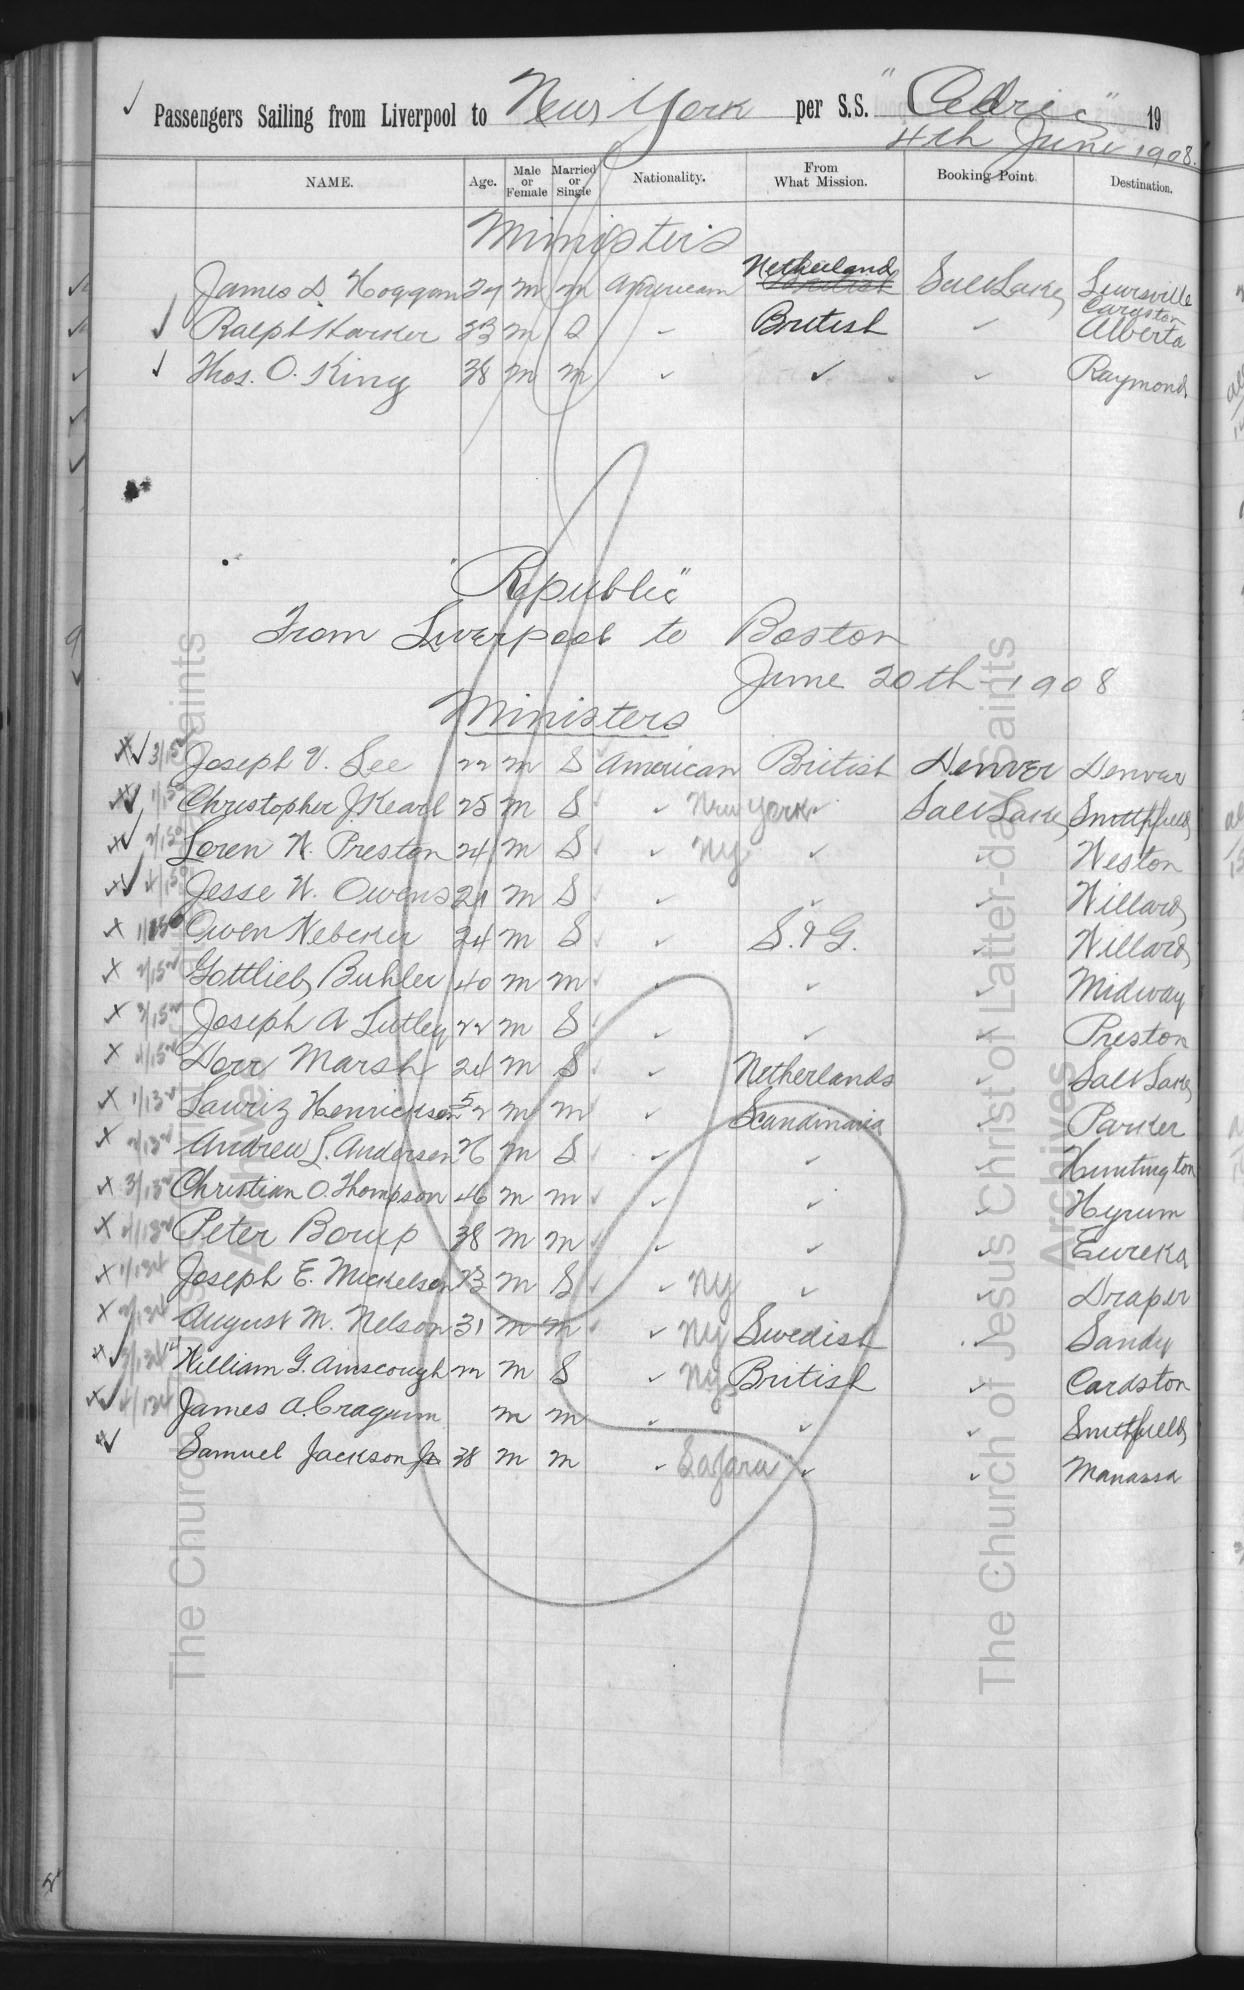 ✓ Passengers Sailing from Liverpool to New York per S.S. "Cedric" 19
4th June 1908.
NAME. Age. Male or Female Married or Single Nationality. From What Mission. Booking Point Destination.
Ministers
James D. Hoggan 29 m m American Netherlands Salt Lake Lewisville
✓ Ralph Harker 23 m S " British ✓ Cardston Alberta
✓ Thos. O. King 38 m m ✓ ✓ ✓ Raymond
"Republic"
From Liverpool to Boston
June 20th 1908
Ministers
X✓ 3/152 Joseph V. Lee 22 m S American British Denver Denver
X✓ 1/150 Christopher J. Kearl 25 m S ✓ New York ✓ Salt Lake Smithfield
X✓ 2/150 Loren W. Preston 24 m S ✓ NY ✓ ✓ Weston
X✓ 4/150 Jesse W. Owens 21 m S ✓ ✓ ✓ Willard
X Owen Nebeker 24 m S ✓ S. & G. ✓ Willard
X 2/152 Gottlieb Buhler 40 m m ✓ ✓ ✓ Midway
X 3/152 Joseph A 22 m S ✓ ✓ ✓ Preston
X 4/152 Dorr Marsh 24 m S ✓ Netherlands ✓ Salt Lake
X 1/132 Lauriz Henricksen 52 m m ✓ Scandinavia ✓ Parker
X 2/132 Andrew L. Andersen 26 m S ✓ ✓ ✓ Huntington
X 3/132 Christian O. Thompson 46 m m ✓ ✓ ✓ Hyrum
X 4/132 Peter Borup 38 m m ✓ ✓ ✓ Eureka
X 1/134 Joseph E. Mickelsen 23 m S ✓ NY ✓ ✓ Draper
X 2/134 August M. Nelson 31 m m ✓ NY Swedish ✓ Sandy
X✓ 3/134 William G. Ainscough 22 m S ✓ NY British ✓ Cardston
X✓ 4/134 James A. Cragun m m ✓ ✓ ✓ Smithfield
X✓ Samuel Jackson Jr 38 m m ✓ LaJara ✓ ✓ Manassa
The Church of Jesus Christ of Latter-day Saints
Archives
The Church of Jesus Christ of Latter-day Saints
Archives